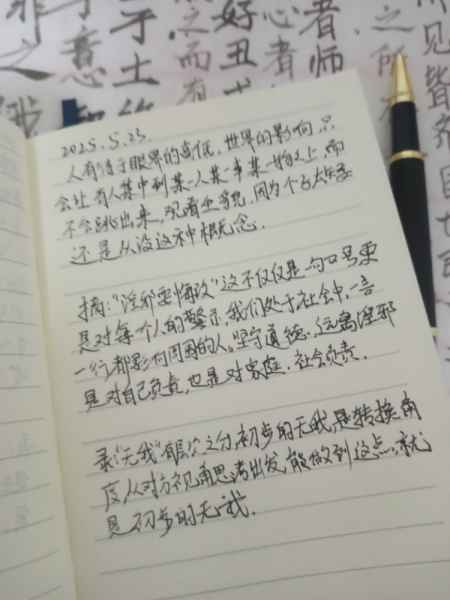 2025.5.23.
人有情于眼界的高低,世界的影响,只
会让有人集中到某一人某一事某一物之上,而
不会跳出来,观看全貌,因为个
还是从没这种概念.
摘:"淫邪要悔改"这不仅仅是一句口号更
是对每个人的警示,我们处于社会中,一言
一行都影响周围的人。坚守道德,远离淫邪
是对自己负责,也是对家庭.社会负责.
录"无我"有层次之分,初步的无我,是转换角
度从对方视角思考出发,能做到这点,就
是初步的无我.